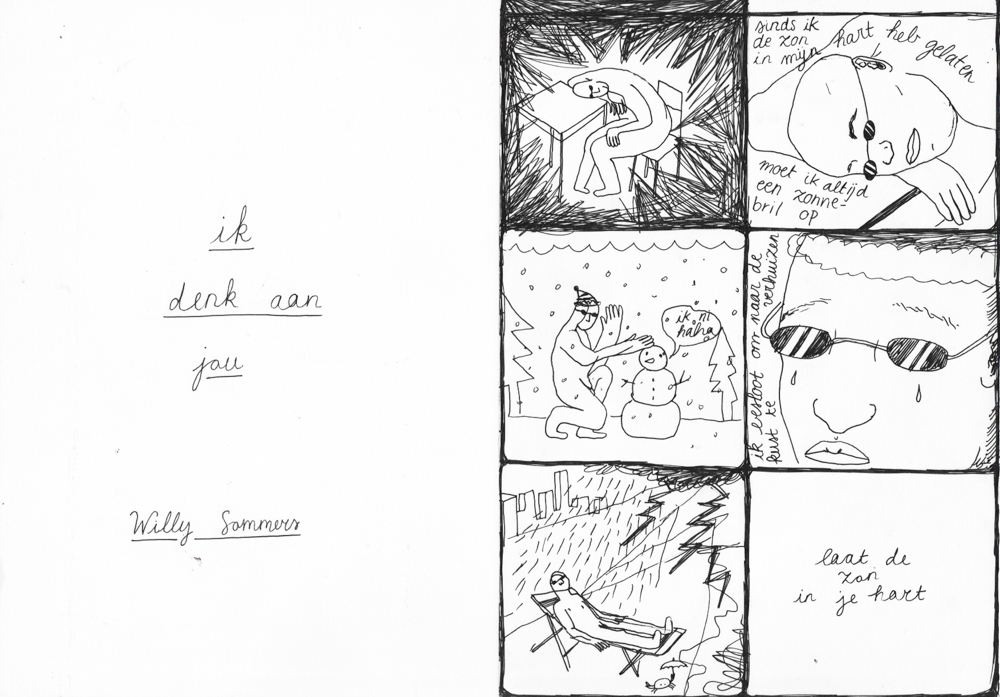 ik
denk aan
jou
Willy Sommers
sinds ik
de zon
in mijn
hart heb gelaten
moet ik altijd
een zonne-
bril op
ik ni
haha
ik besloot om naar de
kust te verhuizen
laat de
zon
in je hart